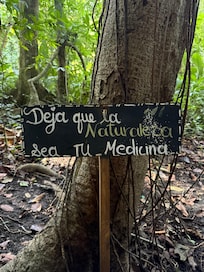 Deja que la
Naturaleza
Sea Tu Medicina...